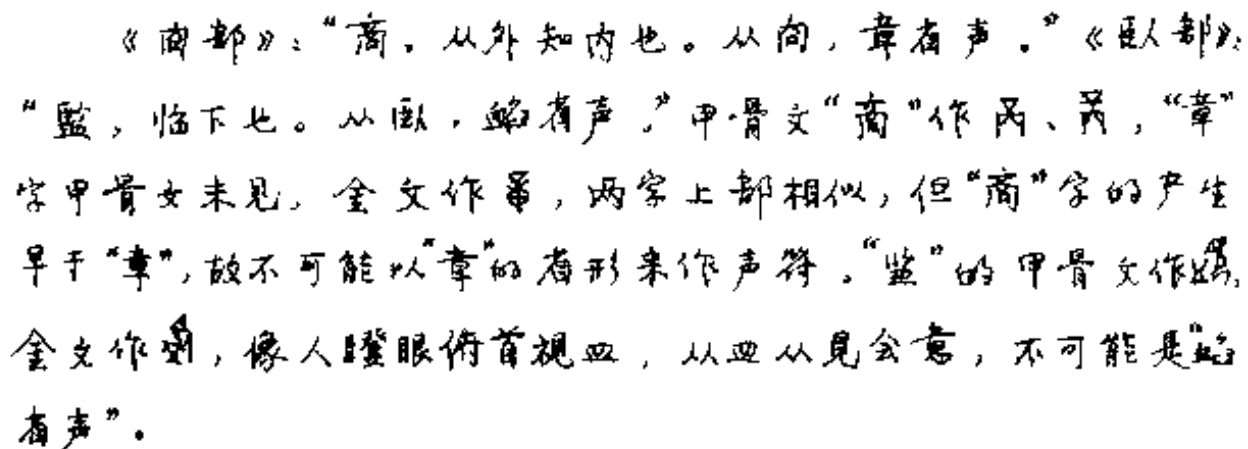 《㕯部》：“商，从外知内也。从㕯，章省声。”《臥部》：
“監，临下也。从臥，䘓省声。”甲骨文“商”作、，“章”
字甲骨文未见，金文作，两字上部相似，但“商”字的产生
早于“章”，故不可能以“章”的省形来作声符。“监”的甲骨文作，
金文作，像人瞪眼俯首视皿，从皿从見会意，不可能是“䘓
省声”。